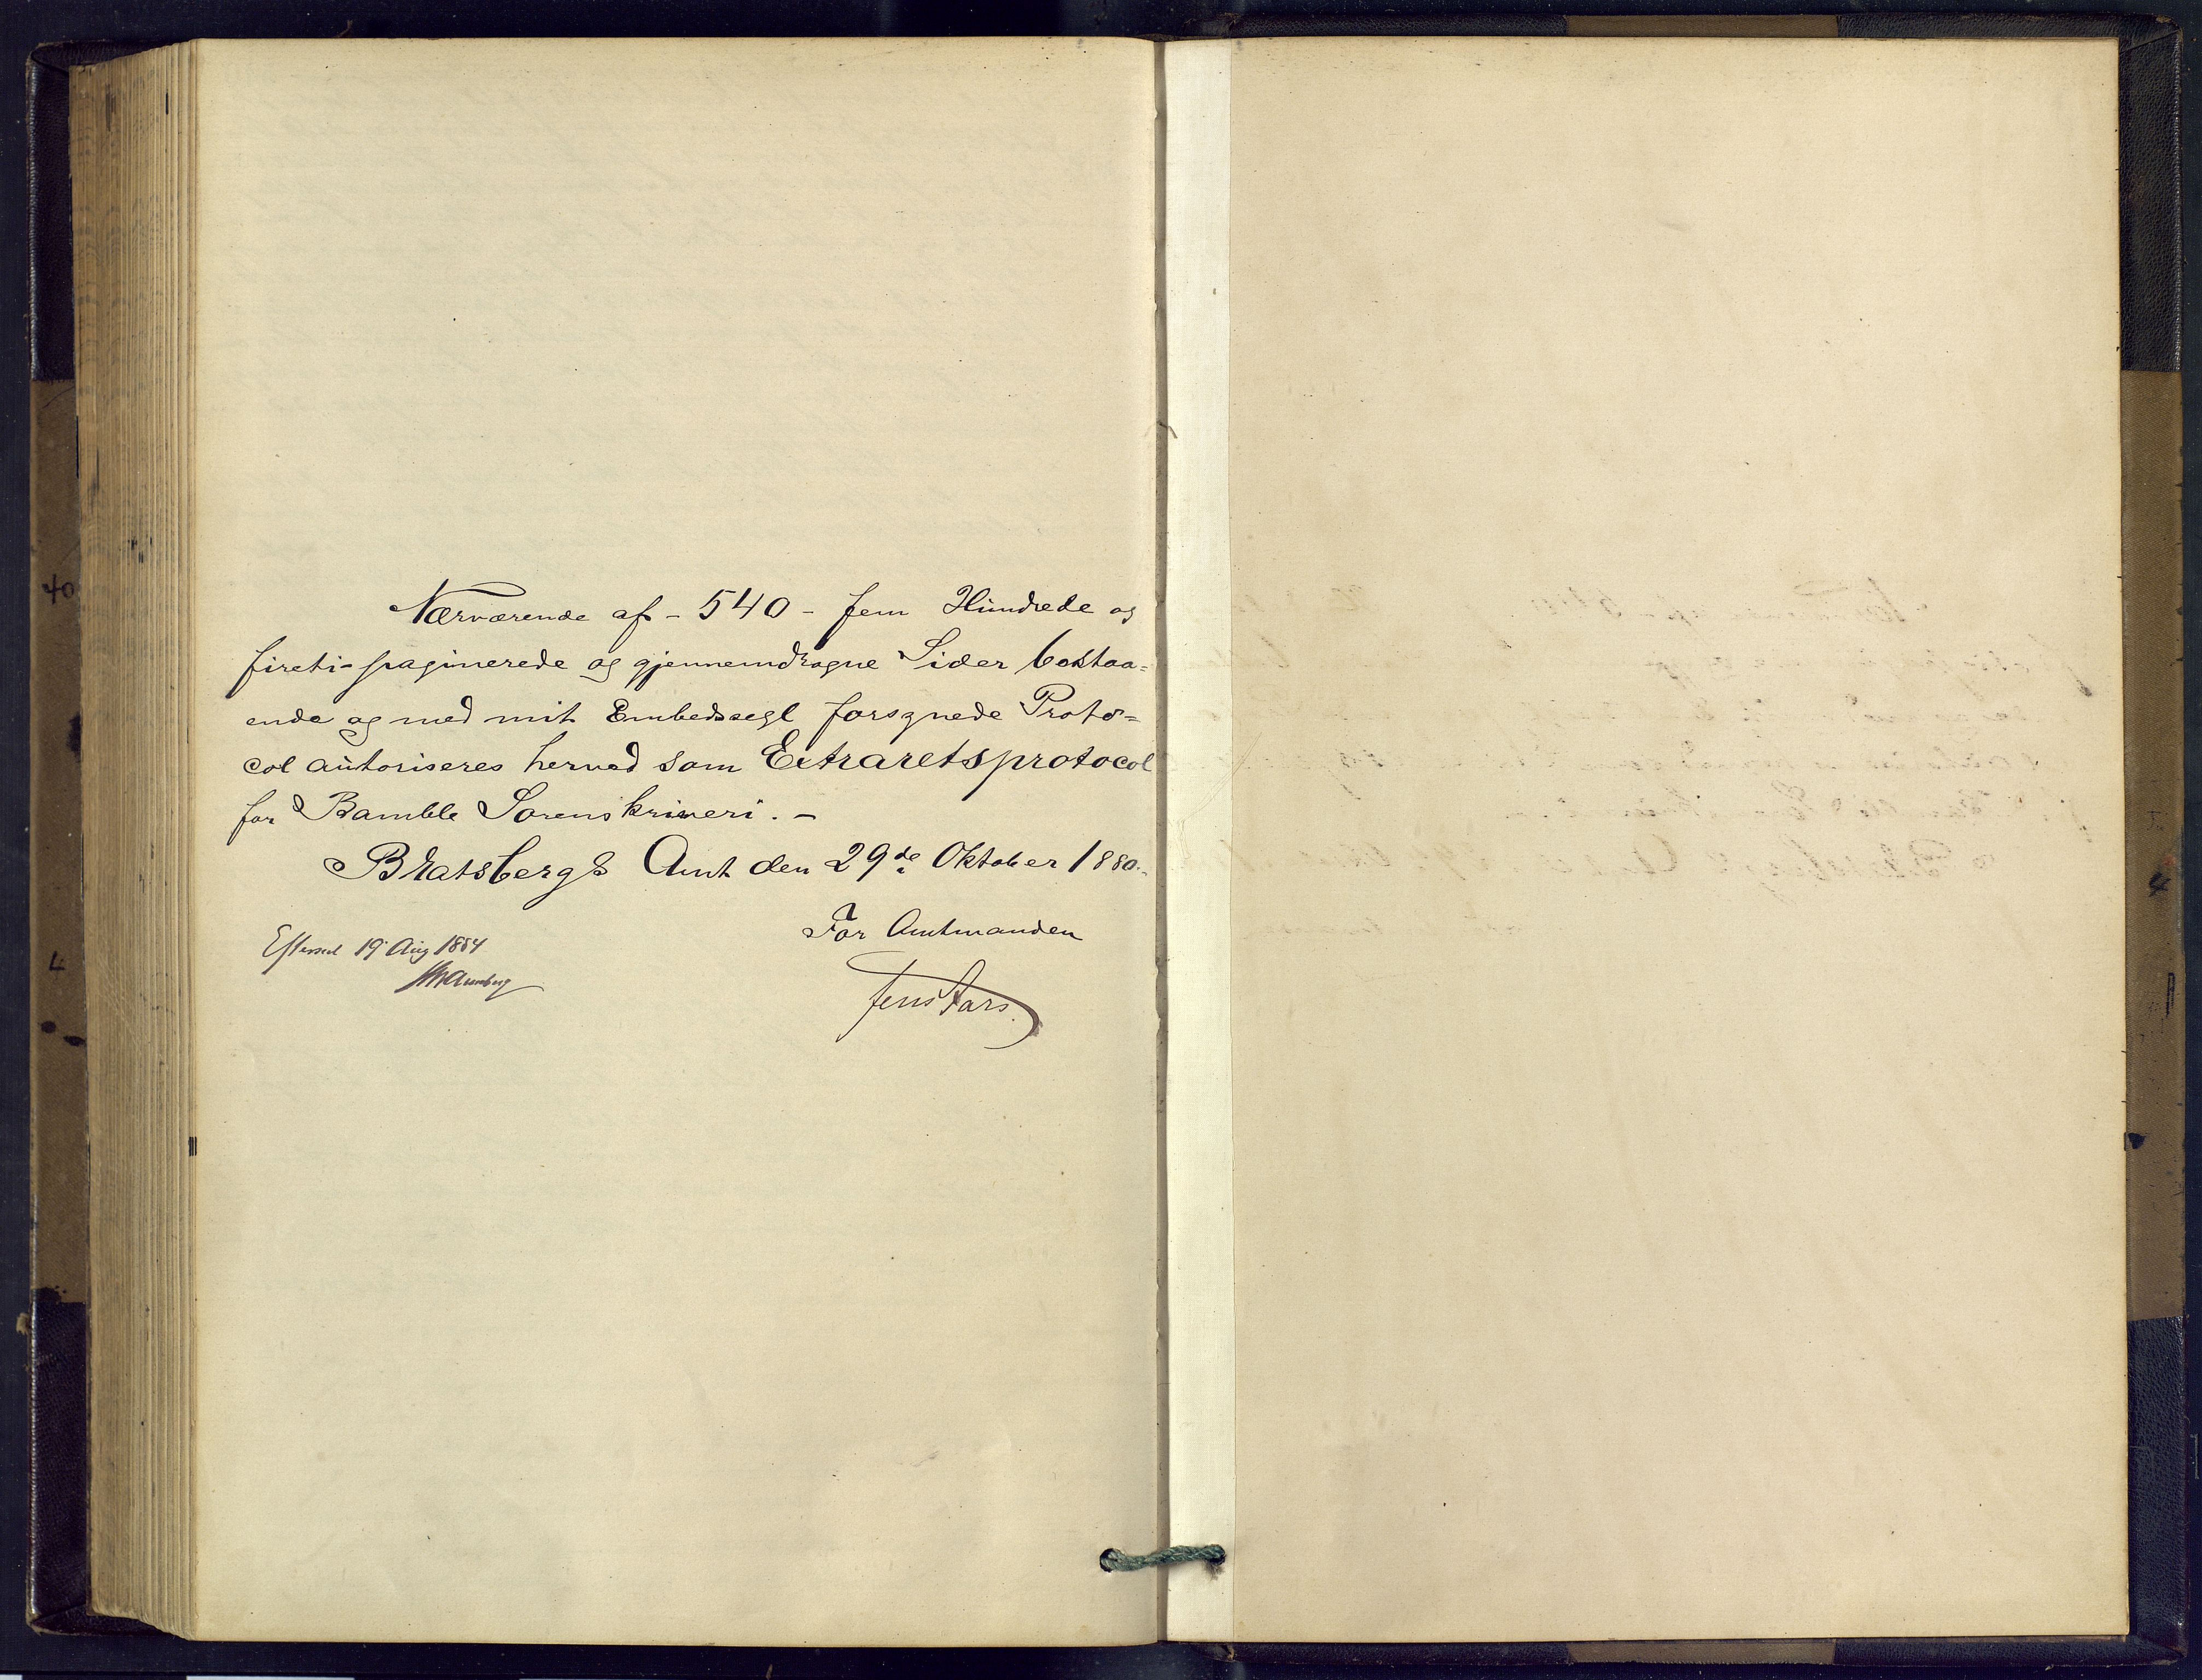 Nærværende af - 540 - fem Hundrede og
fireti- paginerede og gjennemdragne Sider bestaa=
ende og med mit Embedssegl forsynede Proto=
col autoriseres herved som Extraretsprotocol
for Bamble Sorenskriveri. -
Bratsbergs Amt den 29de Oktober 1880.
For Amtmanden
Jens Aars.
Efterseet 19 Aug 1884
40
4
4